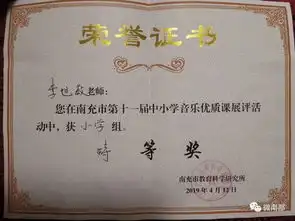 荣誉证书
老师:
您在南充市第十一届中小学音乐优质课展评活
动中，获 小学 组
特 等 奖
南充市教育科学研究所
2019年4月12日
微南部